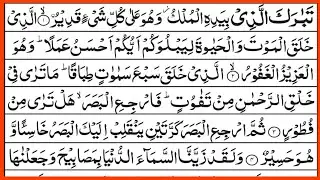 تَبٰرَكَ الَّذِیْ بِیَدِهِ الْمُلْكُ ؗ وَهُوَ عَلٰی كُلِّ شَیْءٍ قَدِیْرُ ۙ۝۱ اۨلَّذِیْ
خَلَقَ الْمَوْتَ وَالْحَیٰوةَ لِیَبْلُوَكُمْ اَیُّكُمْ اَحْسَنُ عَمَلًا ؕ وَهُوَ
الْعَزِیْزُ الْغَفُوْرُ ۙ۝۲ الَّذِیْ خَلَقَ سَبْعَ سَمٰوٰتٍ طِبَاقًا ؕ مَا تَرٰی فِیْ
خَلْقِ الرَّحْمٰنِ مِنْ تَفٰوُتٍ ؕ فَارْجِعِ الْبَصَرَ ۙ هَلْ تَرٰی مِنْ
فُطُوْرٍ ۝۳ ثُمَّ ارْجِعِ الْبَصَرَ كَرَّتَیْنِ یَنْقَلِبْ اِلَیْكَ الْبَصَرُ خَاسِئًا وَّ
هُوَ حَسِیْرٌ ۝۴ وَلَقَدْ زَیَّنَّا السَّمَآءَ الدُّنْیَا بِمَصَابِیْحَ وَجَعَلْنٰهَا